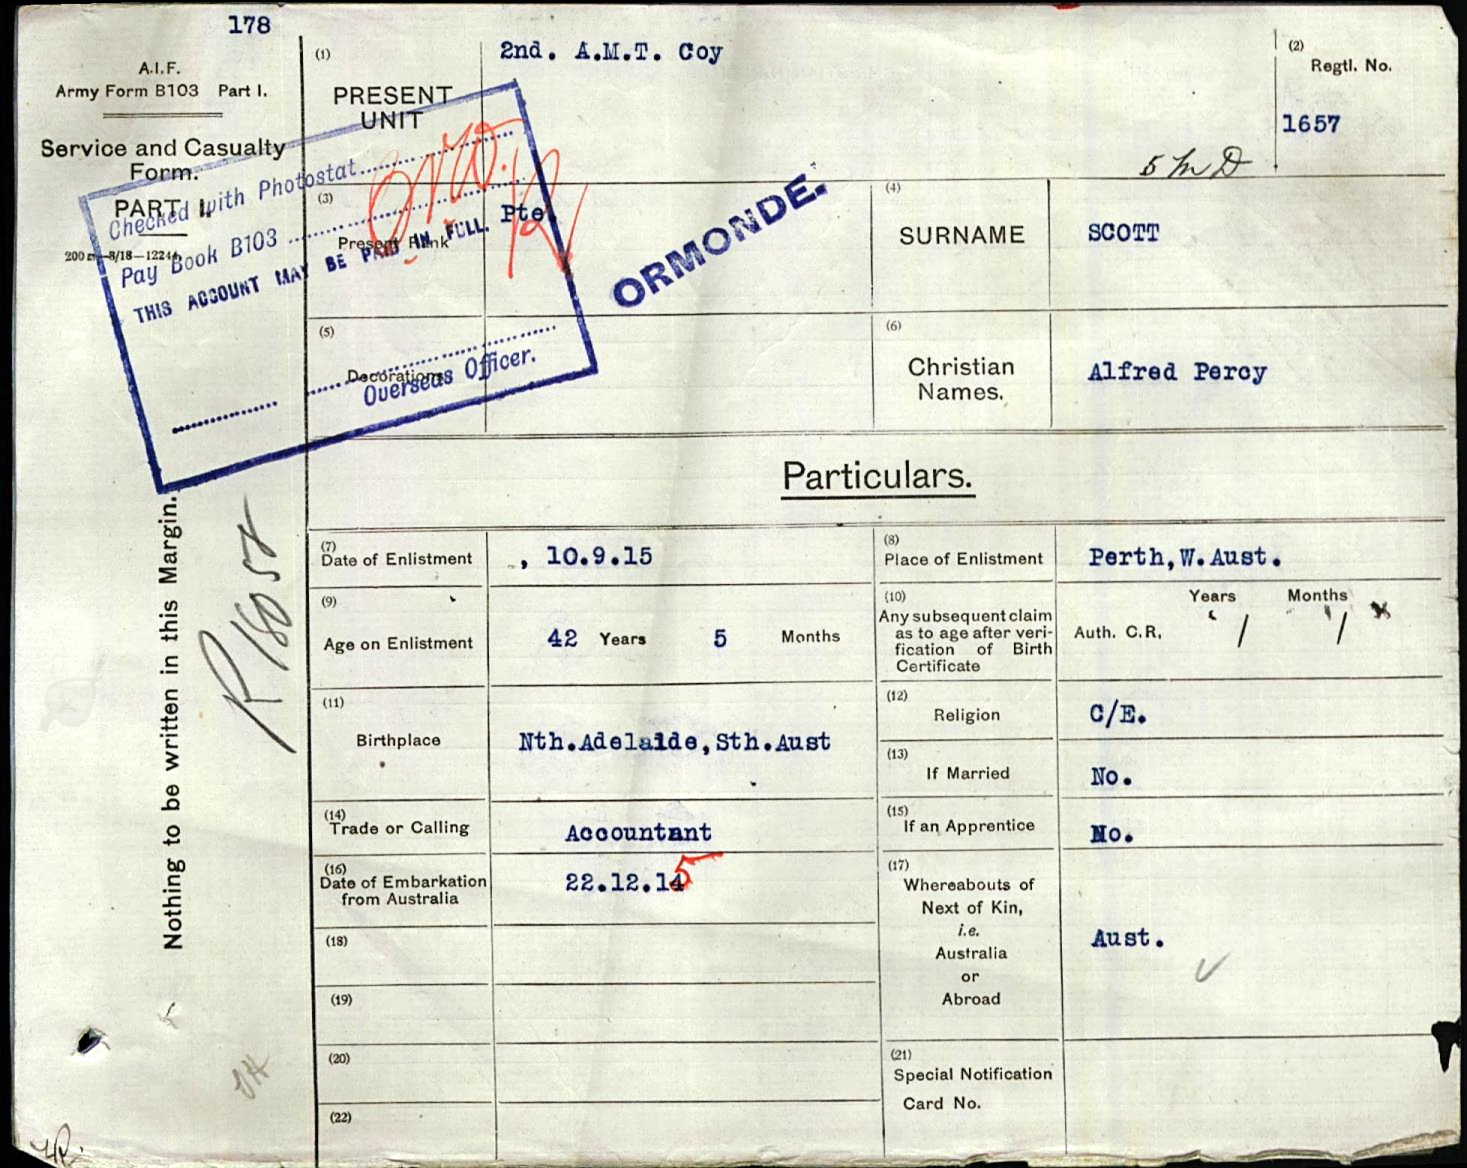 178
A.I.F.
Army Form B103 Part I.
Service and Casualty
Form.
PART I.
(1)
PRESENT
UNIT
2nd. A.M.T. Coy
(2)
Regtl. No.
1657
5 M D
Checked with Photostat
Pay Book B103
THIS ACCOUNT MAY BE PAID IN FULL.
Overseas Officer.
(3)
Present Rank
Pte.
ORMONDE.
(4)
SURNAME
SCOTT
(5)
Decorations
(6)
Christian
Names.
Alfred Percy
Nothing to be written in this Margin.
Particulars.
(7)
Date of Enlistment
, 10.9.15
(8)
Place of Enlistment
Perth, W. Aust.
(9)
Age on Enlistment
42 Years 5 Months
(10)
Any subsequent claim
as to age after veri-
fication of Birth
Certificate
Years Months
Auth. C.R. / /
(11)
Birthplace
Nth. Adelaide, Sth. Aust
(12)
Religion
C/E.
(13)
If Married
No.
(14)
Trade or Calling
Accountant
(15)
If an Apprentice
No.
(16)
Date of Embarkation
from Australia
22.12.14 5
(17)
Whereabouts of
Next of Kin,
i.e.
Australia
or
Abroad
Aust.
(18)
(19)
(20)
(21)
Special Notification
Card No.
(22)